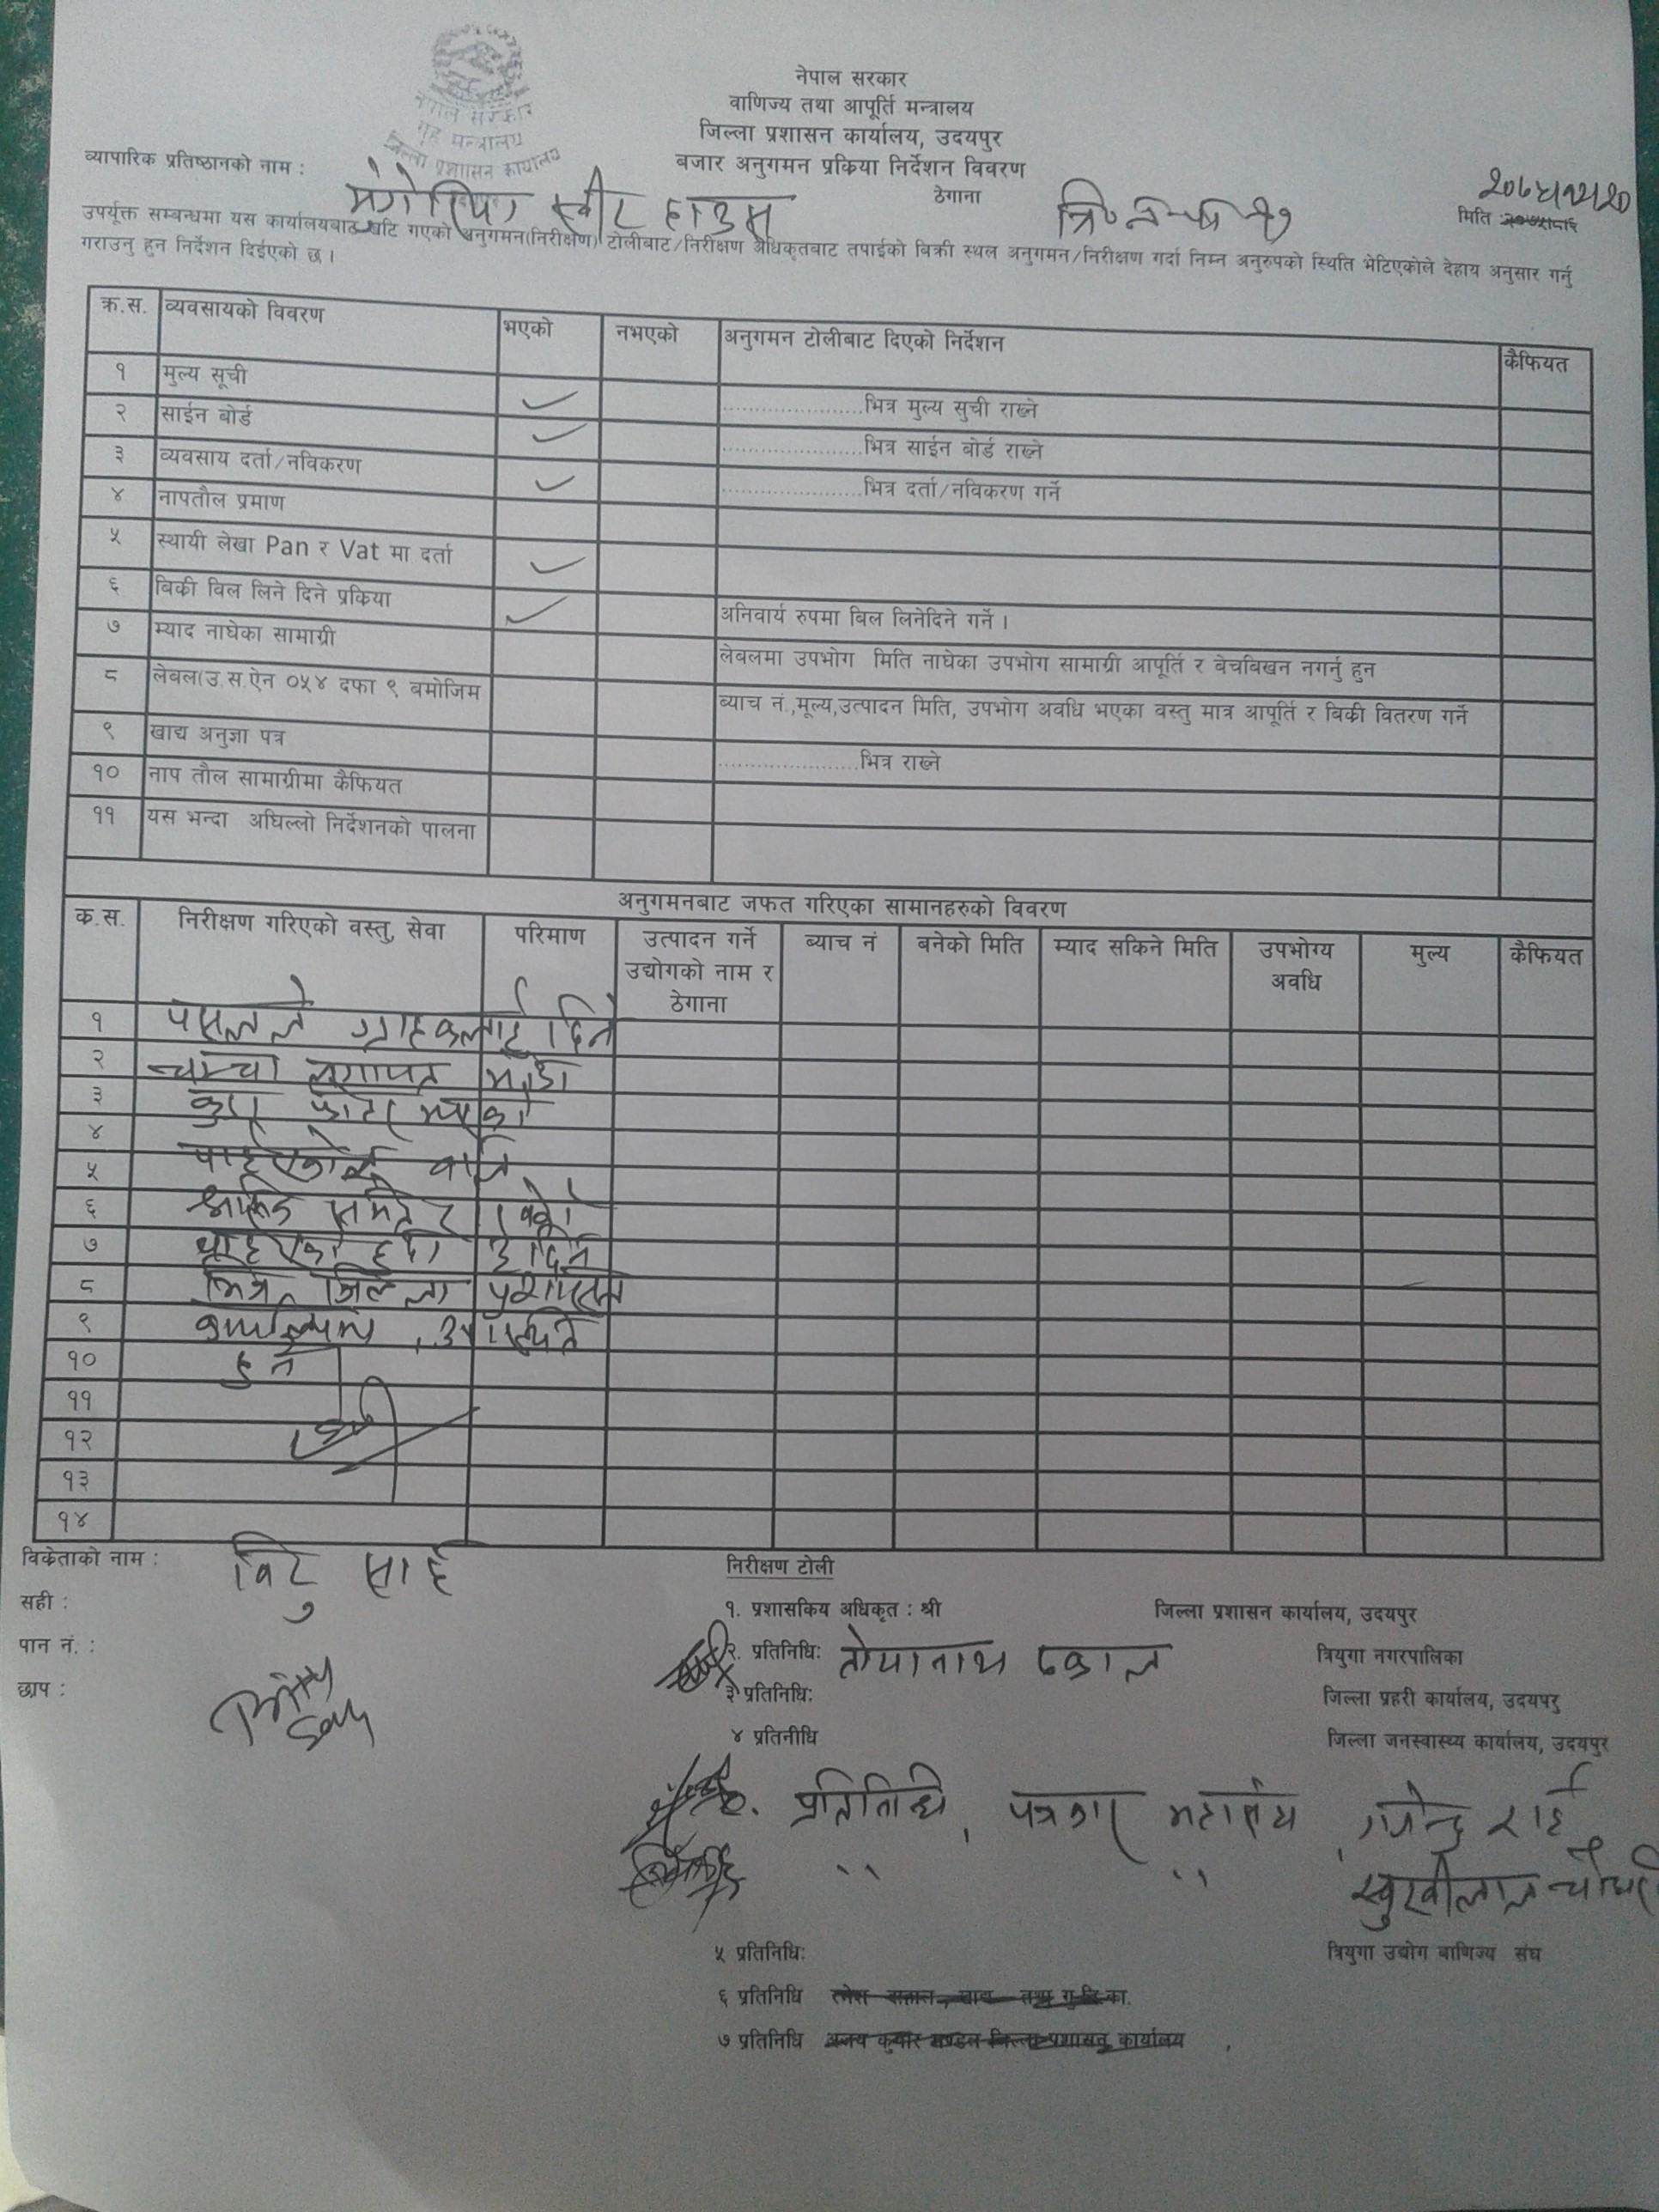 नेपाल सरकार
गृह मन्त्रालय
जिल्ला प्रशासन कार्यालय
नेपाल सरकार
वाणिज्य तथा आपूर्ति मन्त्रालय
जिल्ला प्रशासन कार्यालय, उदयपुर
बजार अनुगमन प्रक्रिया निर्देशन विवरण
व्यापारिक प्रतिष्ठानको नाम : स्वीट हाउस ठेगाना
मिति :
उपर्यूक्त सम्बन्धमा यस कार्यालयबाट खटि गएको अनुगमन(निरीक्षण) टोलीबाट/निरीक्षण अधिकृतबाट तपाईको बिक्री स्थल अनुगमन/निरीक्षण गर्दा निम्न अनुरुपको स्थिति भेटिएकोले देहाय अनुसार गर्नु
गराउनु हुन निर्देशन दिईएको छ ।
क्र.स. व्यवसायको विवरण भएको नभएको अनुगमन टोलीबाट दिएको निर्देशन कैफियत
१ मुल्य सूची ✓ ......................भित्र मुल्य सुची राख्ने
२ साईन बोर्ड ✓ ......................भित्र साईन बोर्ड राख्ने
३ व्यवसाय दर्ता/नविकरण ✓ ......................भित्र दर्ता/नविकरण गर्ने
४ नापतौल प्रमाण
५ स्थायी लेखा Pan र Vat मा दर्ता ✓
६ बिक्री विल लिने दिने प्रक्रिया ✓ अनिवार्य रुपमा बिल लिनेदिने गर्ने ।
७ म्याद नाघेका सामाग्री लेबलमा उपभोग मिति नाघेका उपभोग सामाग्री आपूर्ति र बेचबिखन नगर्नु हुन
८ लेबल(उ.स.ऐन ०५४ दफा ९ बमोजिम ब्याच नं.,मूल्य,उत्पादन मिति, उपभोग अवधि भएका वस्तु मात्र आपूर्ति र बिक्री वितरण गर्ने
९ खाद्य अनुज्ञा पत्र ......................भित्र राख्ने
१० नाप तौल सामाग्रीमा कैफियत
११ यस भन्दा अघिल्लो निर्देशनको पालना
अनुगमनबाट जफत गरिएका सामानहरुको विवरण
क.स. निरीक्षण गरिएको वस्तु, सेवा परिमाण उत्पादन गर्ने उद्योगको नाम र ठेगाना ब्याच नं बनेको मिति म्याद सकिने मिति उपभोग्य अवधि मुल्य कैफियत
१ पसलले ग्राहकलाई दिने
२
३
४
५
६
७ ३ दिन
८ भित्र जिल्ला प्रशासन
९ कार्यालयमा उपस्थित
१० हुने
११
१२
१३
१४
विक्रेताको नाम : विटु साह
सही :
पान नं. :
छाप :
निरीक्षण टोली
१. प्रशासकिय अधिकृत : श्री जिल्ला प्रशासन कार्यालय, उदयपुर
२. प्रतिनिधि: तोयानाथ ढकाल त्रियुगा नगरपालिका
३ प्रतिनिधि: जिल्ला प्रहरी कार्यालय, उदयपरु
४ प्रतिनीधि जिल्ला जनस्वास्थ्य कार्यालय, उदयपुर
प्रतिनिधि, पत्रकार महासंघ, गजेन्द्र राई
" "
५ प्रतिनिधि: त्रियुगा उद्योग बाणिज्य संघ
६ प्रतिनिधि
७ प्रतिनिधि अजय कुमार मण्डल जिल्ला प्रशासन कार्यालय